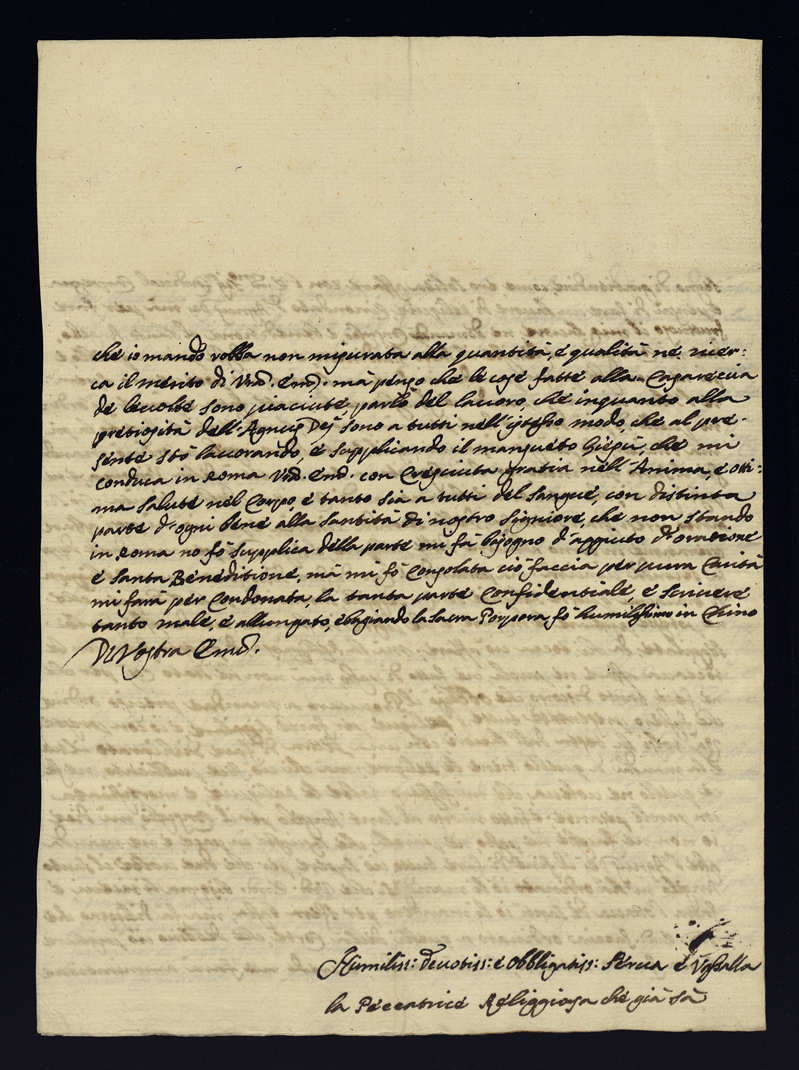 che io mando robba non misurata alla quantità, e qualità ne ricer-
ca il merito di Vrã. Emã. mà penso che le cose fatte alla Casareccia
de le volte sono piaciute, parlo del lavoro, che inquanto alla
pretiosità dell'Agnus Dej sono a tutti nell'istesso modo, che al pre-
sente stò lavorando, e supplicando il mansueto Giesù, che mi
conduca in Roma Vrã. Emã. con Cresciuta gratia nell'Anima, e otti-
ma salute nel Corpo, e tanto sia a tutti del sangue, con distinta
parte d'ogni bene alla santità di nostro signiore, che non stando
in Roma no fò supplica della parte mi fà bisogno d'aggiuto d'oratione
e santa Beneditione, mà mi fò consolata ciò faccia per pura Carità
mi farà per Condonata, la tanta parte Confidentiale, e scrivere
tanto male, e allungato, e bagiando la sacra Porpora, fò humilissimo in Chino
Di Vostra Emã.
Humiliss: devotiss: e obbligatiss: serva e Vassalla
la Peccatrice Religgiosa che già sà